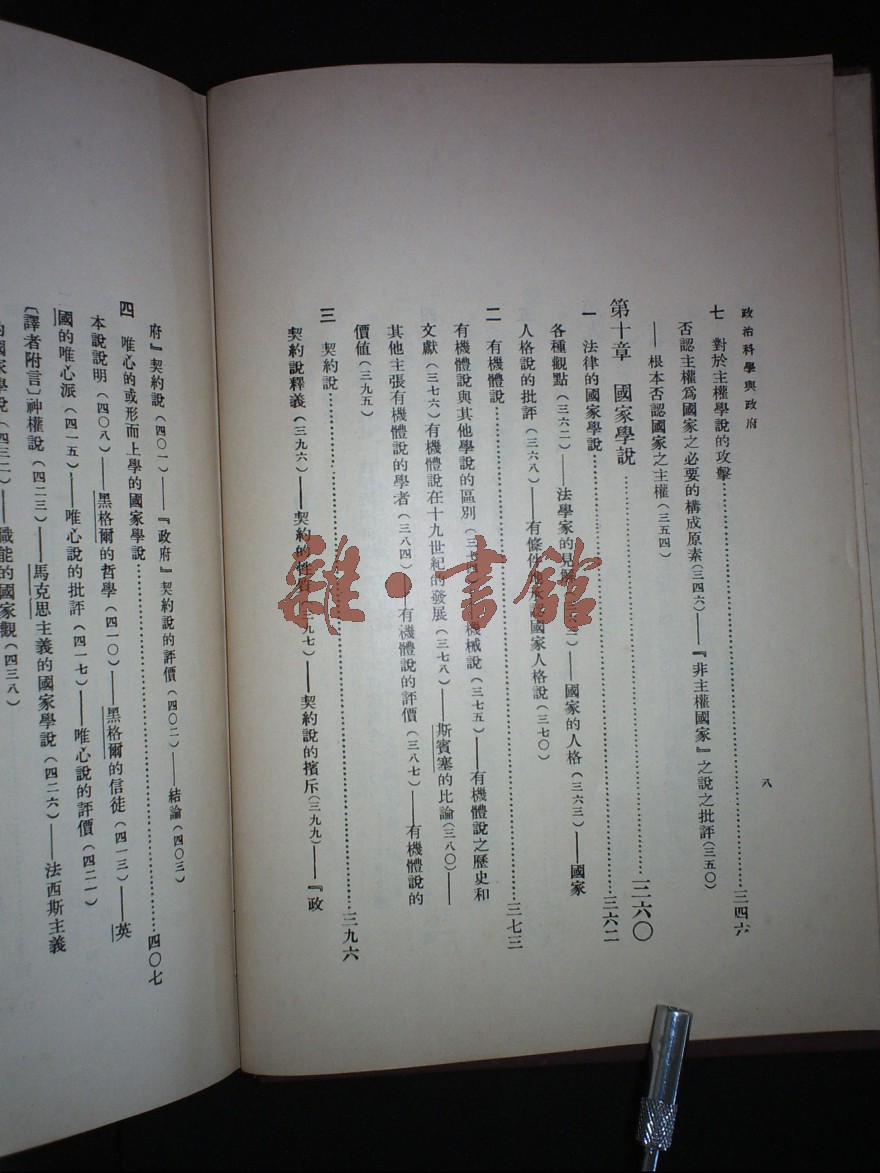 政治科學與政府
八
七 對於主權學說的攻擊……三四六
否認主權爲國家之必要的構成原素(三四六)——『非主權國家』之說之批評(三五〇)
——根本否認國家之主權(三五四)
第十章 國家學說……三六〇
一 法律的國家學說……三六二
各種觀點(三六二)——法學家的見解——國家的人格(三六三)——國家
人格說的批評(三六八)——有條件地承認國家人格說(三七〇)
二 有機體說……三七三
有機體說與其他學說的區別(三七四 機械說(三七五)——有機體說之歷史和
文獻(三七六)有機體說在十九世紀的發展(三七八)——斯賓塞的比論(三八〇)——
其他主張有機體說的學者(三八四)——有機體說的評價(三八七)——有機體說的
價値(三九五)
三 契約說……三九六
契約說釋義(三九六)——契約的性質(三九七)——契約說的擯斥(三九九)——『政
府』契約說(四〇一)——『政府』契約說的評價(四〇二)——結論(四〇三)
四 唯心的或形而上學的國家學說……四〇七
本說說明(四〇八)——黑格爾的哲學(四一〇)——黑格爾的信徒(四一三)——英
國的唯心派(四一五)——唯心說的批評(四一七)——唯心說的評價(四二一)
〔譯者附言〕神權說(四二三)——馬克思主義的國家學說(四二六)——法西斯主義
的國家學說(四三二)——職能的國家觀(四三八)
雜·書館